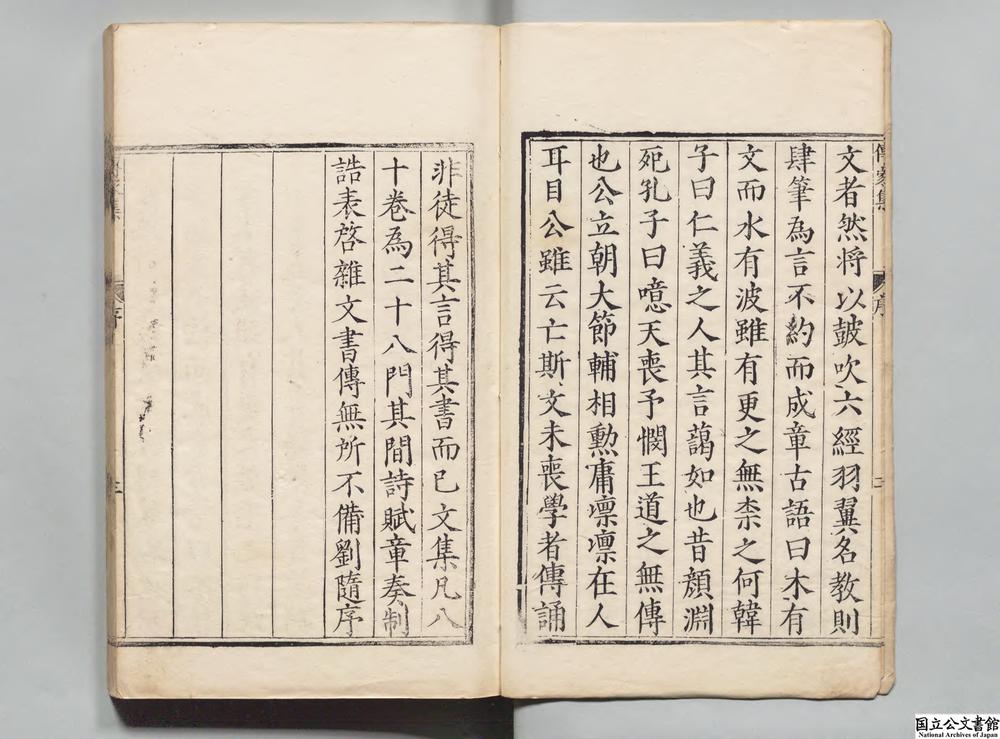 文者然将以皷吹六經羽翼名教則
肆筆為言不約而成章古語曰木有
文而水有波雖有更之無柰之何韓
子曰仁義之人其言藹如也昔顔淵
死孔子曰噫天喪予憫王道之無傳
也公立朝大節輔相勲庸凛凛在人
耳目公雖云亡斯文未喪學者傳誦
非徒得其言得其書而已文集凡八
十卷為二十八門其間詩賦章奏制
誥表啓雜文書傳無所不備劉隨序
序
二
序
三
国立公文書館
National Archives of Japan